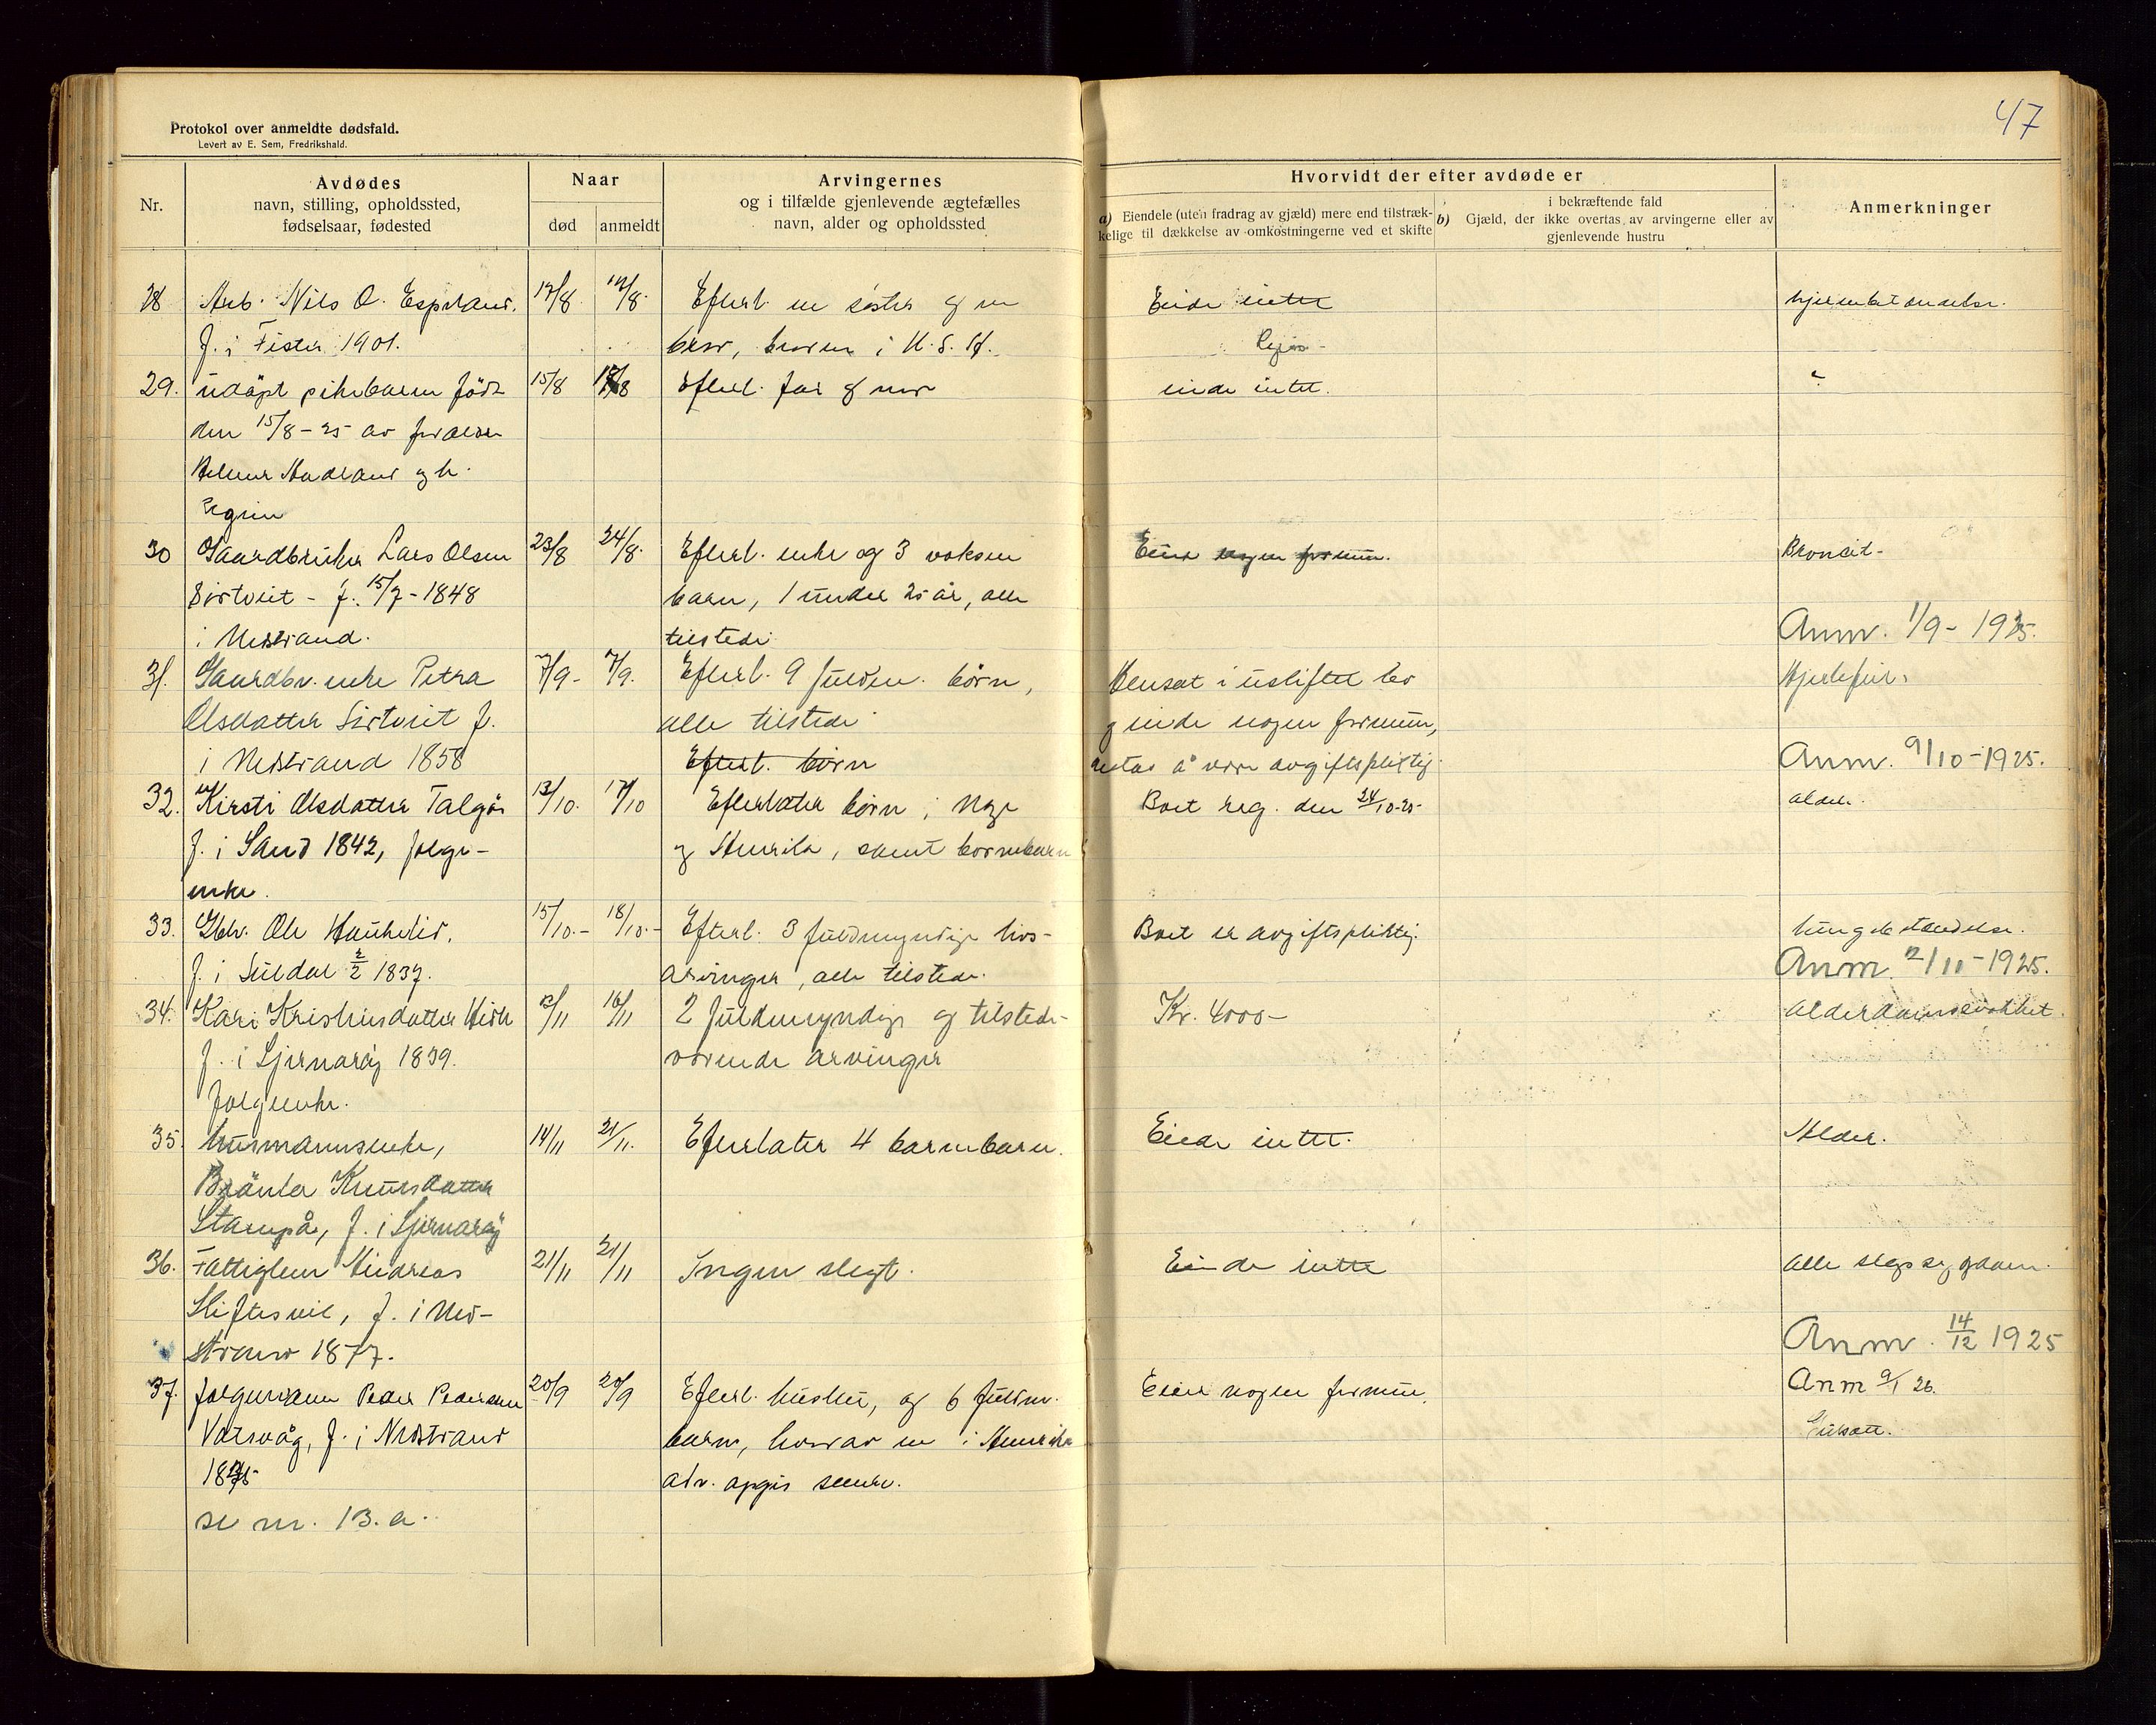 47
Protokol over anmeldte dødsfald.
Levert av E. Sem, Fredrikshald.
Nr.
Avdødes
navn, stilling, opholdssted,
fødselsaar, fødested
Naar
død
anmeldt
Arvingernes
og i tilfælde gjenlevende ægtefælles
navn, alder og opholdssted
Hvorvidt der efter avdøde er
a) Eiendele (uten fradrag av gjæld) mere end tilstræk-
kelige til dækkelse av omkostningerne ved et skifte
b) Gjæld, der
i bekræftende fald
ikke overtas av arvingerne eller av
gjenlevende hustru
Anmerkninger
28 Arb. Nils O. Espeland. 12/8 14/8. Efterl. en søster og en Eiede intet
f. i Fister 1901. bror, broren i U.S.A.
29. udöpt pikebarn född 15/8 18/8 Efterl. far og mor eiede intet.
den 15/8-25 av foraldre
og h.
30 Gaardbruker Lars Olsen 23/8 24/8. Efterl. enke og 3 voksne Eiend nogen formue. Broncit-
Sistveit - f. 15/7-1848 barn, 1 under 20 år, alle
i Nedstrand. tilstede Anm. 1/9-1925.
31. Gaardbr. enke Petra 7/9- 7/9. Efterl. 9 fuldm. börn, Hensat i uskiftet bo Hjertefeil.
Olsdatter Sistveit f. alle tilstede og eiede nogen formue,
i Nedstrand 1858 Efterl. börn antas å være avgiftspliktig. Anm. 9/10-1925.
32. Kirsti Olsdatter Talgö 13/10. 17/10 Efterlater börn i Norge Boet reg. den 24/10-25- alder.
f. i Sand 1842, folge- og Amerika, samt börnebarn
enke.
33. Gbr. Ole Haukelid. 15/10.- 18/10.- Efterl. 3 fuldmyndige livs- Boet er avgiftspliktig. lungebetændelse.
f. i Suldal 2/2 1837. arvinger, alle tilstede. Anm. 2/11-1925.
34. Kari Kristensdatter 12/11 16/11 2 fuldmyndige og tilstede- Kr. 4000- alderdomssvakhet.
f. i Sjernaröy 1839. værende arvinger
folgeenke.
35. husmannsenke, 14/11 21/11. Efterlater 4 barnebarn. Eiede intet. Alder.
Knutsdatter
Stampå, f. i Sjernaröy
36. Fattiglem Andreas 21/11 21/11 Ingen slegt. Eiede intet alle slags sygdom.
f. i Ned-
strand 1877. Anm. 14/12 1925
37. folgemann Peder Pedersen 20/9 20/9 Efterl. hustru, og 6 fuldm. Eiend nogen formue. Anm 9/1 26.
Vatsvåg, f. i Nedstrand barn, hvorav en i Amerika
adr. opgis senere.
se nr. 13. a.